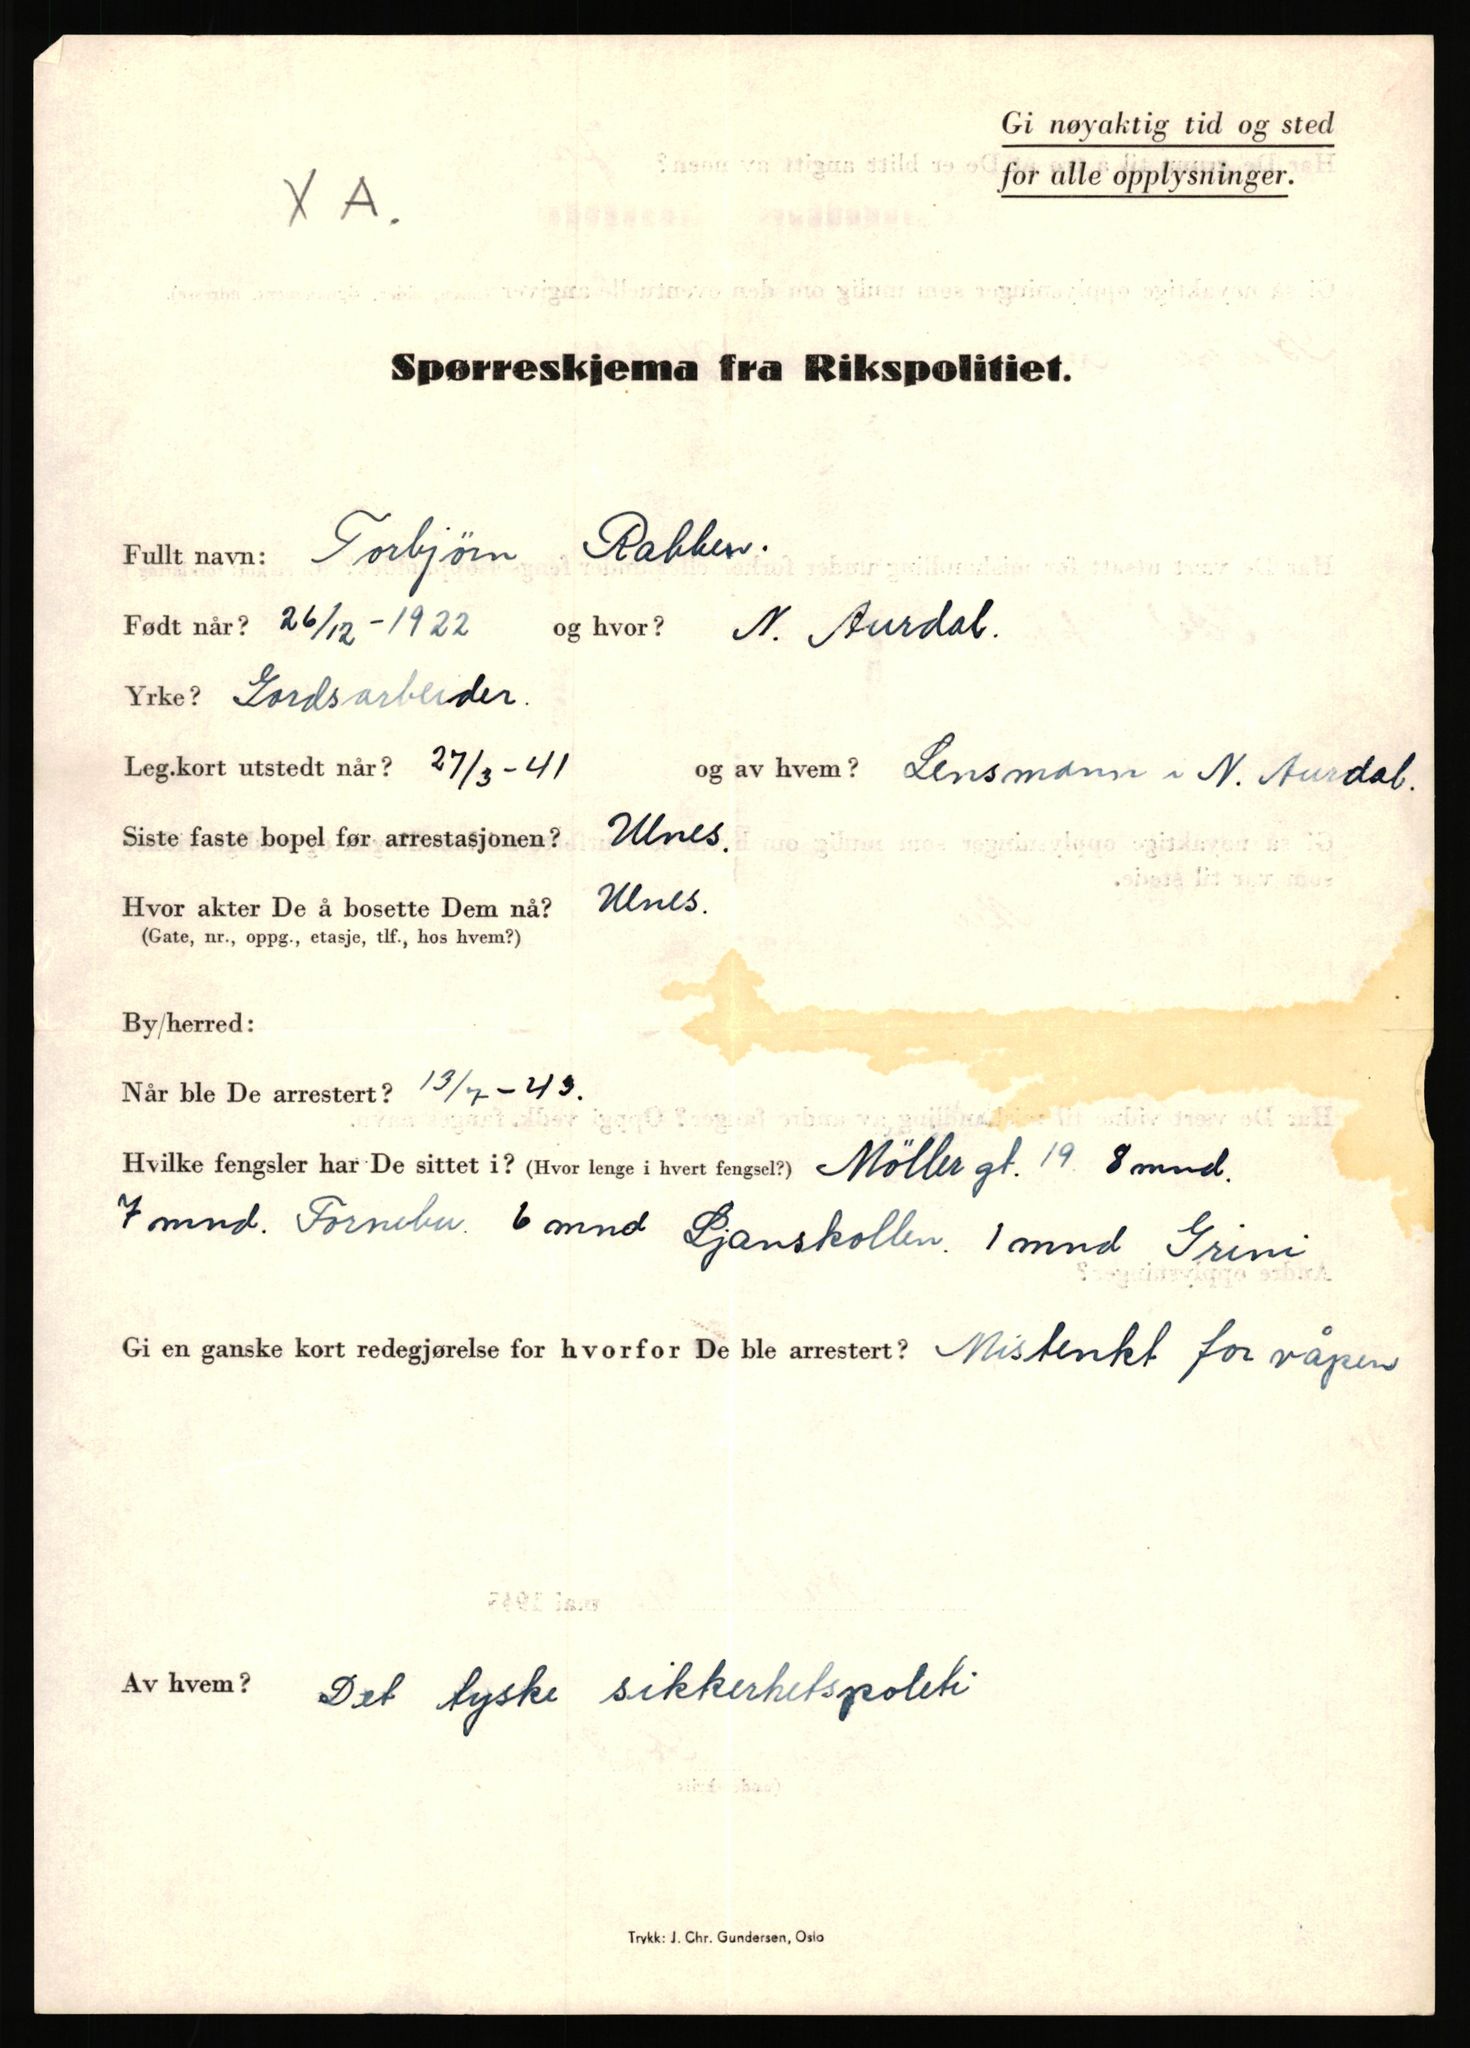 Gi nøyaktig tid og sted
for alle opplysninger.
X A.
Spørreskjema fra Rikspolitiet.
Fullt navn: Torbjörn Rabben.
Født når? 26/12 - 1922 og hvor? N. Aurdal.
Yrke? Gardsarbeider.
Leg.kort utstedt når? 27/3 - 41 og av hvem? Lensmann i N. Aurdal.
Siste faste bopel før arrestasjonen? Ulnes.
Hvor akter De å bosette Dem nå? Ulnes.
(Gate, nr., oppg., etasje, tlf., hos hvem?)
By/herred:
Når ble De arrestert? 13/7 - 43.
Hvilke fengsler har De sittet i? (Hvor lenge i hvert fengsel?) Möller gt. 19 8 mnd.
7 mnd. Fornebu. 6 mnd Ljanskollen. 1 mnd Grini
Gi en ganske kort redegjørelse for hvorfor De ble arrestert? Mistenkt for våpen
mai 1945
Av hvem? Det tyske sikkerhetspoleti
Trykk: J. Chr. Gundersen, Oslo